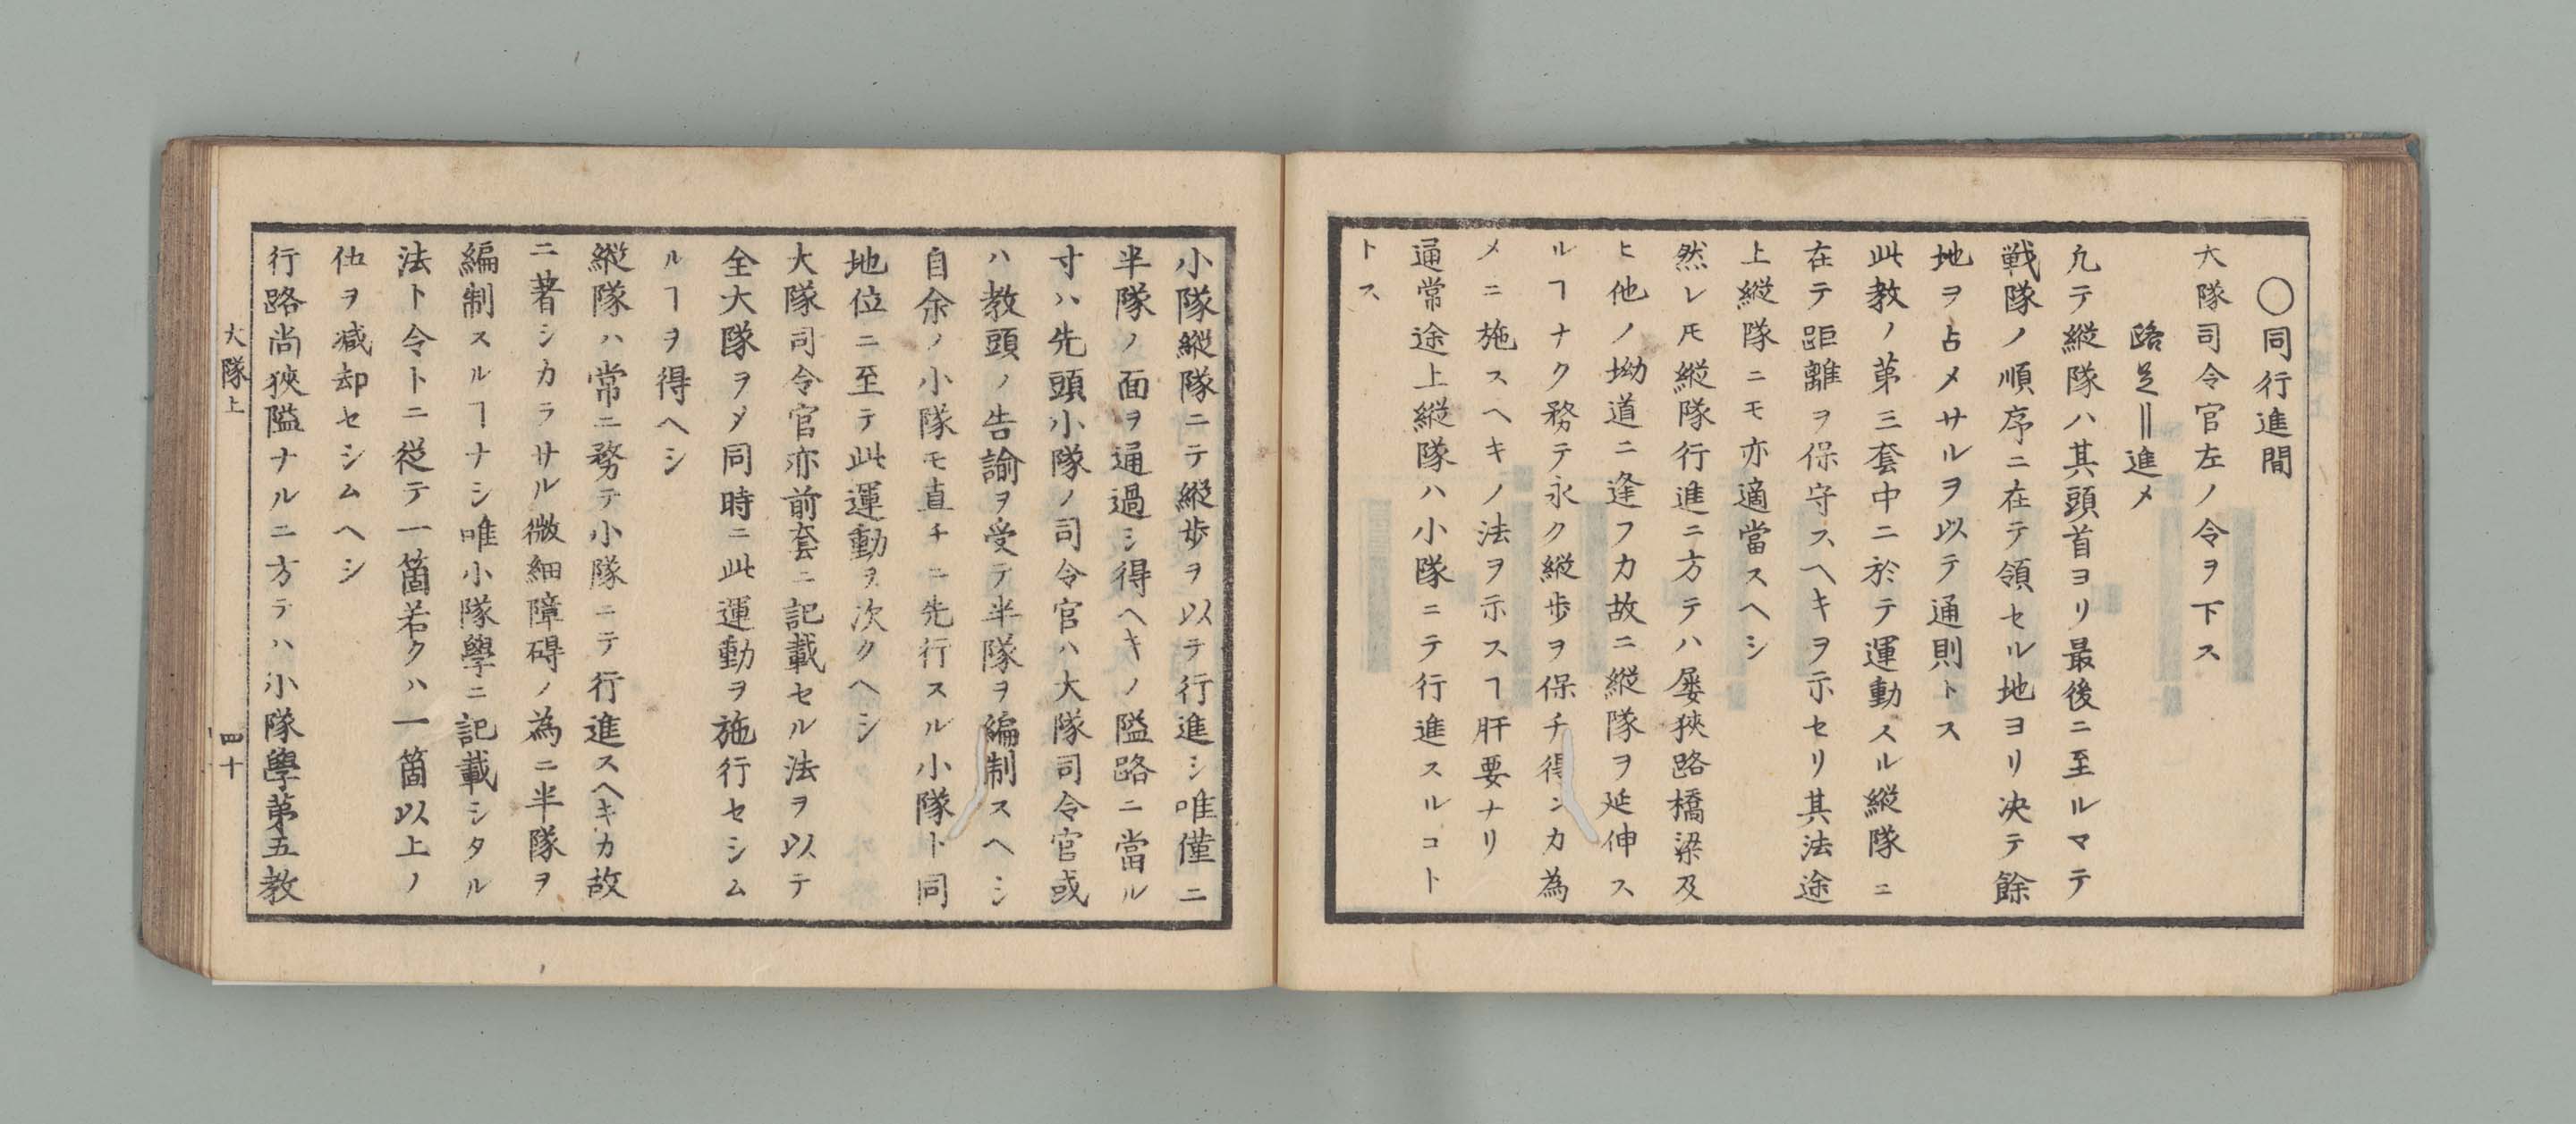 〇同行進間
大隊司令官左ノ令ヲ下ス
路足‖進メ
凢テ縦隊ハ其頭首ヨリ最後ニ至ルマテ
戦隊ノ順序ニ在テ領セル地ヨリ决テ餘
地ヲ占メサルヲ以テ通則トス
此教ノ第三套中ニ於テ運動スル縦隊ニ
在テ距離ヲ保守スヘキヲ示セリ其法途
上縦隊ニモ亦適當スヘシ
然レ𪜈縦隊行進ニ方テハ屡狹路橋梁及
ヒ他ノ坳道ニ逢フカ故ニ縦隊ヲ延伸ス
ルヿナク務テ永ク縦歩ヲ保チ得ンカ為
メニ施スヘキノ法ヲ示スヿ肝要ナリ
通常途上縦隊ハ小隊ニテ行進スルコト
トス
小隊縦隊ニテ縦歩ヲ以テ行進シ唯僅ニ
半隊ノ面ヲ通過シ得ヘキノ隘路ニ當ル
寸ハ先頭小隊ノ司令官ハ大隊司令官或
ハ教頭ノ告諭ヲ受テ半隊ヲ編制スヘシ
自余ノ小隊モ直チニ先行スル小隊ト同
地位ニ至テ此運動ヲ次クヘシ
大隊司令官亦前套ニ記載セル法ヲ以テ
全大隊ヲメ同時ニ此運動ヲ施行セシム
ルヿヲ得ヘシ
縦隊ハ常ニ務テ小隊ニテ行進スヘキカ故
ニ著シカラサル微細障碍ノ為ニ半隊ヲ
編制スルヿナシ唯小隊學ニ記載シタル
法ト令トニ従テ一箇若クハ一箇以上ノ
伍ヲ减却セシムヘシ
行路尚狹隘ナルニ方テハ小隊學第五教
大隊上
四十